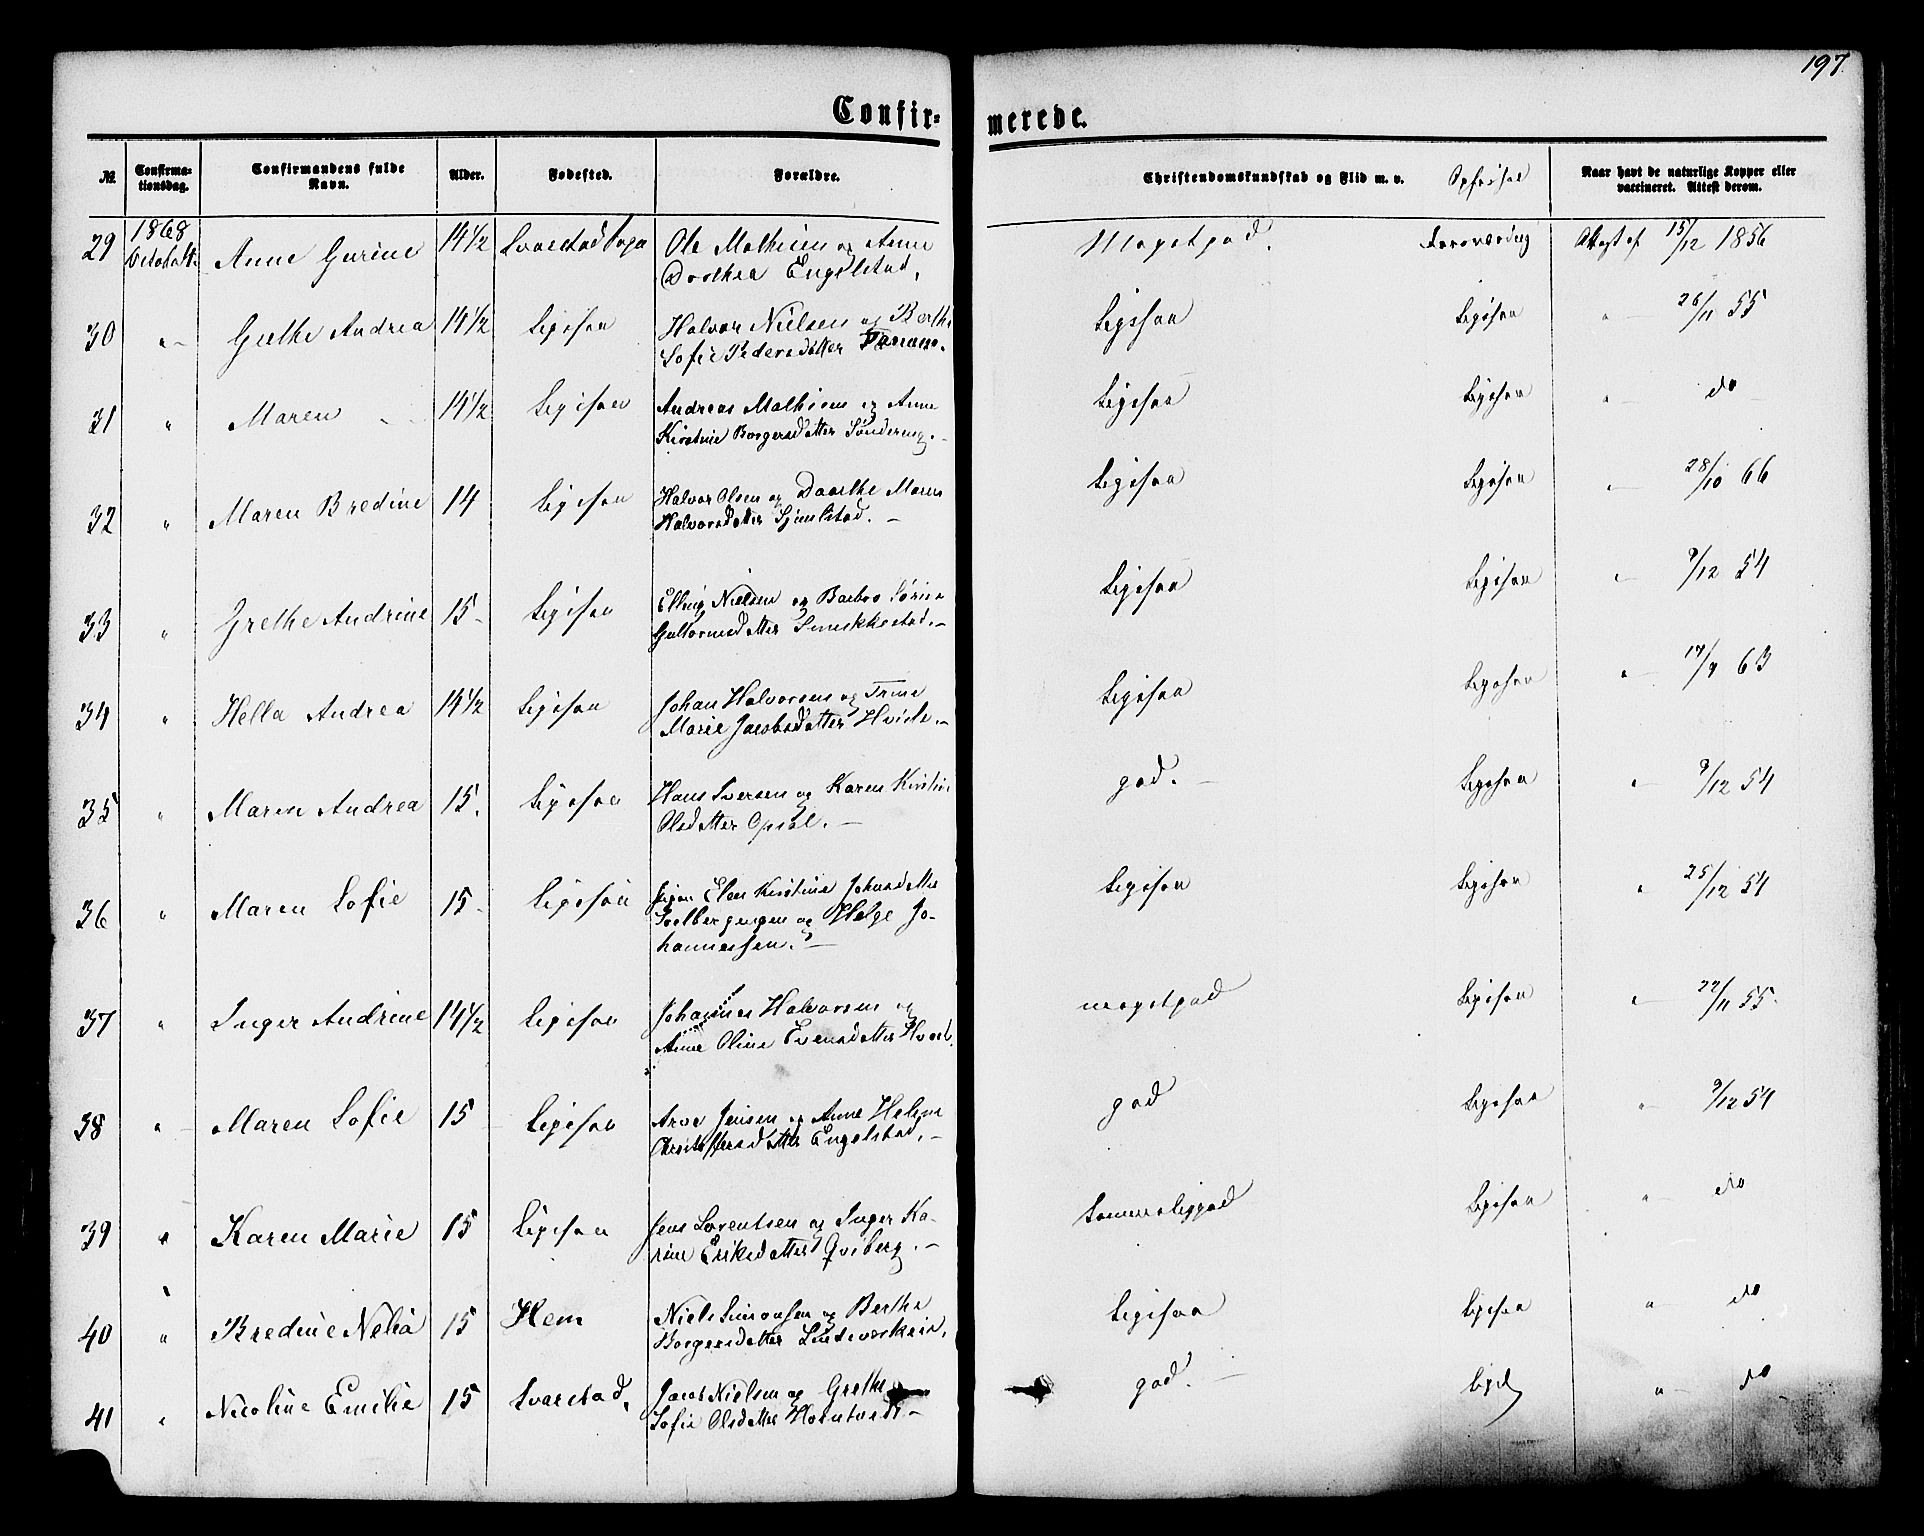 197
Confir= merede.
№ Confirma= tionsdag. Confirmandens fulde Navn. Alder. Fødested. Forældre. Christendomskundskab og Flid m. v. Opførsel Naar havt de naturlige Kopper eller vaccineret. Attest derom.
29 1868 Anne Gurine 14½ Svarstad Sogn Ole Mathisen og Anne Meget god. Attest af 15/12 1856
Dorthea Engelstad.
30 " Grethe Andrea 14½ Ligesaa Halvor Nielsen og Berthe Ligesaa Ligesaa " 26/11 55
Sofie Pedersdatter
31 " Maren 14½ Ligesaa Andreas Mathisen og Anne Ligesaa Ligesaa " do
Kirstine Borgersdatter
32 " Maren Bredine 14 Ligesaa Halvor Olsen og Dorthe Maren Ligesaa Ligesaa " 28/10 66
Halvorsdatter
33 " Grethe Andrine 15 Ligesaa Elling Nielsen og Barbro Ligesaa Ligesaa " 9/12 54
Guttormsdatter
34 " Hella Andrea 14½ Ligesaa Johan Halvorsen og Trine Ligesaa Ligesaa " 63
Marie Jacobsdatter
35 " Maren Andrea 15. Ligesaa Hans Iversen og Karen Kirstine god. Ligesaa " 9/12 54
Olsdatter Opsal.
36 " Maren Sofie 15 Ligesaa Elen Kirstine Johnsdatter Ligesaa Ligesaa " 25/12 54
og Helge Jo-
hannessen.
37 " Inger Andrine 14½ Ligesaa Johannes Halvorsen og meget god Ligesaa " 22/11 55
Anne Oline Evensdatter
38 " Maren Sofie 15 Ligesaa Arve Jensen og Anne Helene god Ligesaa " 9/12 54
Christoffersdatter Engelstad.
39 " Karen Marie 15 Ligesaa Jens Lorentsen og Inger Ka- Temmelig god Ligesaa " do
rine Eriksdatter Qviberg.
40 " Bredine Nelia 15 Hem Niels Simonsen og Berthe Ligesaa Ligesaa " do
Borgersdatter
41 " Nicoline Emilie 15 Svarstad. Jacob Nielsen og Grethe god. " do
Sofie Olsdatter